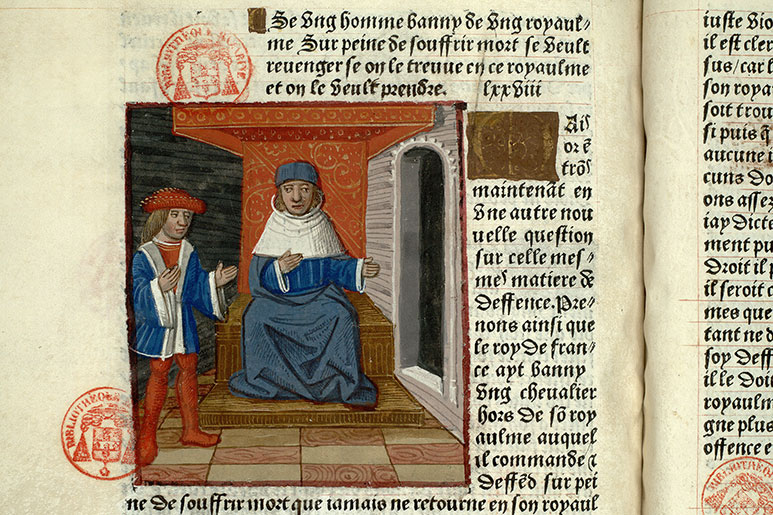 Se vng homme banny de vng royaul⸗
me Sur peine de souffrir mort se veult
reuenger se on le treuue en ce royaulme
et on le veult prendre. lxxviii
Ais
or ē
trōs
maintenāt en
vne autre nou
uelle question
sur celle mes⸗
mes matiere de
deffence. Pre⸗
nons ainsi que
le roy de fran⸗
ce ayt banny
vng cheualier
hors de sō roy
aulme auquel
il commande &
deffēd sur pei
ne de souffrir mort que iamais ne retourne en son royaul
iuste vio
il est cler
sus/car l
son roya
soit trou
si puis q
aucune i
cuns do
ons asser
iay dicte
ment pu
droit il p
il seroit c
mes que
tant ne d
soy deff
il le doi
royaulm
gne plus
offence e